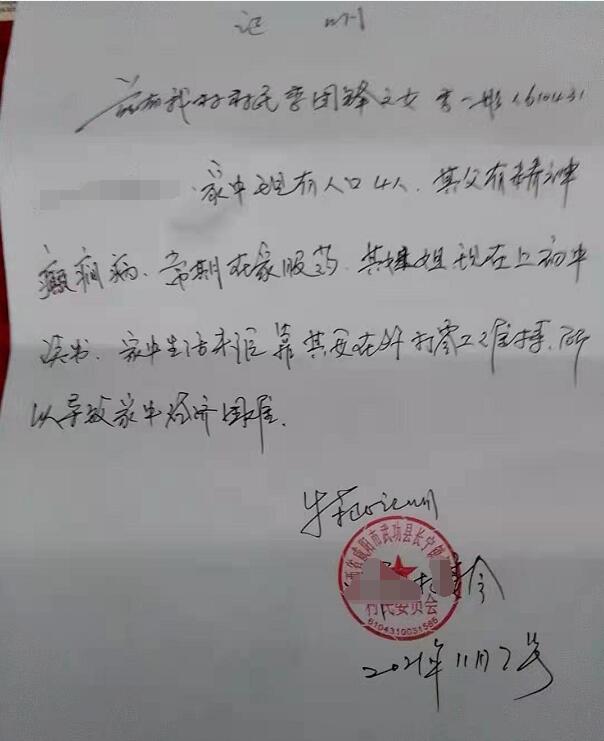 证明
兹有我村村民李团锋之女李一彤，610431
家中现有人口4人，其父有精神
癫痫病、常期在家服药、其姐姐现在上初中
读书、家中生活来源靠其母在外打零工维持，所
以导致家中经济困难。
特此证明
西省咸阳市武功县长宁镇
村民委员会
6104310031566
2021年11月7号